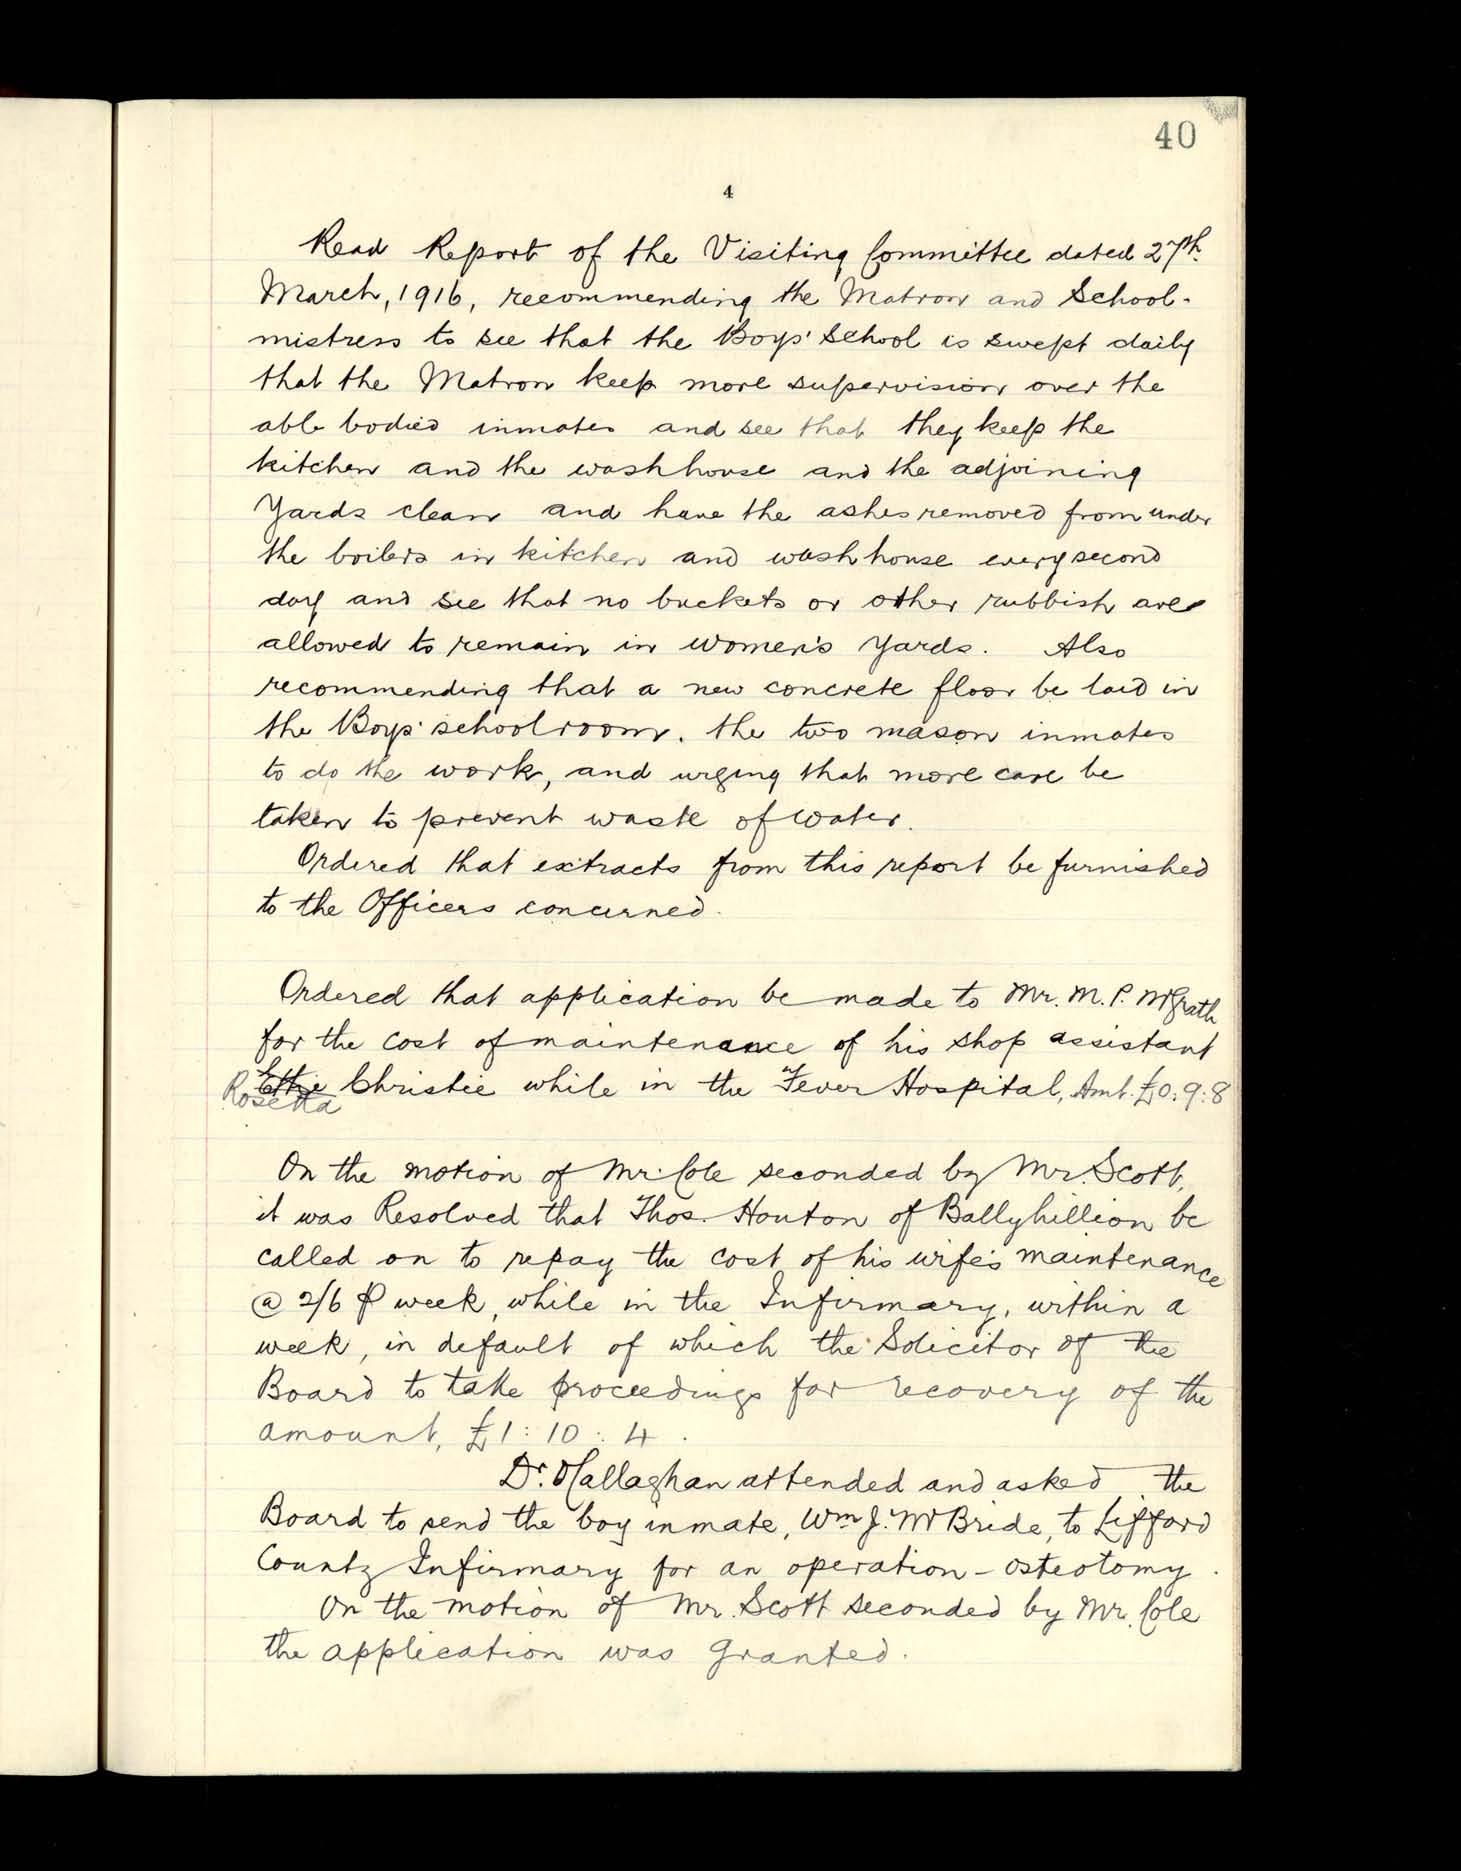 40
4
Read Report of the Visiting Committee dated 27th.
March, 1916, recommending the Matron and School-
mistress to see that the Boys' School is swept daily
that the Matron keep more supervision over the
able bodied inmates and see that they keep the
kitchen and the washhouse and the adjoining
Yards clean and have the ashes removed from under
the boilers in kitchen and wash house every second
day and see that no buckets or other rubbish are
allowed to remain in women's Yards. Also
recommending that a new concrete floor be laid in
the Boys' schoolroom, the two mason inmates
to do the work, and urging that more care be
taken to prevent waste of water.
Ordered that extracts from this report be furnished
to the Officers concerned.
Ordered that application be made to Mr. M. P. McGrath
for the cost of maintenance of his shop assistant
Ettie Christie while in the Fever Hospital, Amt. £0:9:8
Rosetta
On the motion of Mr. Cole seconded by Mr. Scott,
it was Resolved that Thos. Houton of Ballyhillion be
called on to repay the cost of his wife's maintenance
@ 2/6 ⅌ week, while in the Infirmary, within a
week, in default of which the Solicitor of the
Board to take proceedings for recovery of the
amount, £1:10:4.
Dr. O'Callaghan attended and asked the
Board to send the boy inmate, Wm J. McBride, to Lifford
County Infirmary for an operation - osteotomy.
On the motion of Mr. Scott seconded by Mr. Cole
the application was granted.